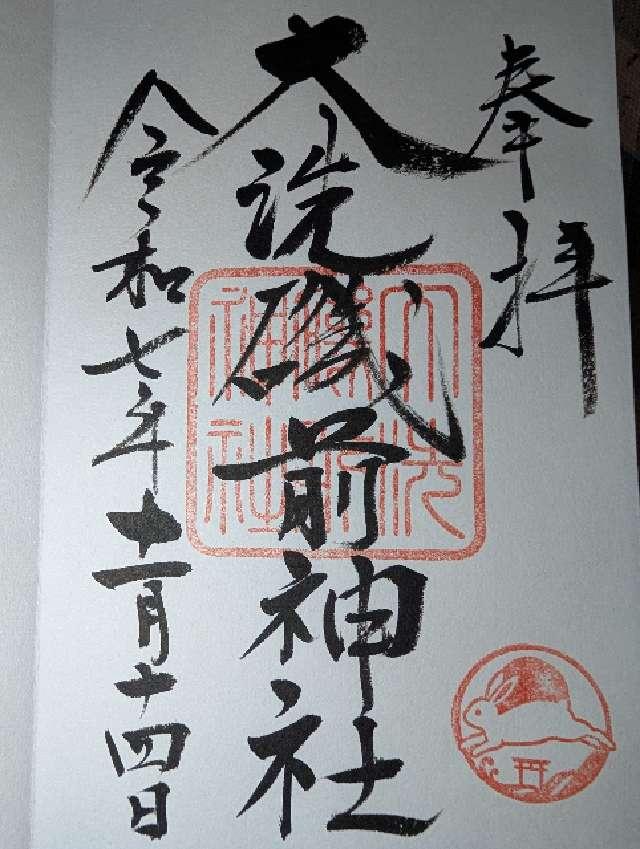 奉拝
大洗磯前神社
令和七年十一月十四日
大洗
磯前
神社